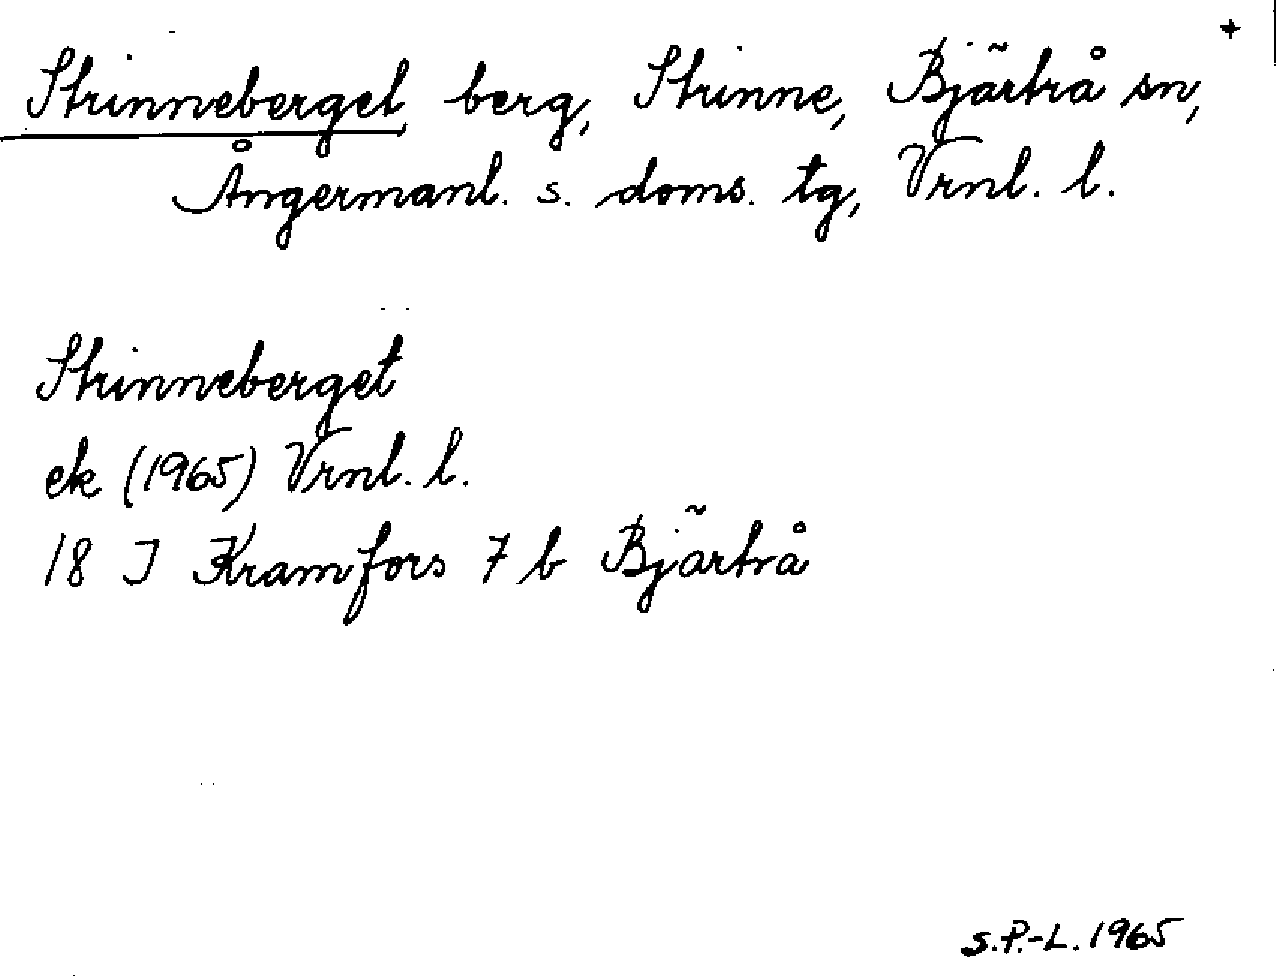 +
Strinneberget berg, Strinne, Bjärtrå sn,
Ångermanl. s. doms. tg, Vrnl. l.
Strinneberget
ek (1965) Vrnl. l.
18 I Kramfors 7 b Bjärtrå
S.P.-L. 1965